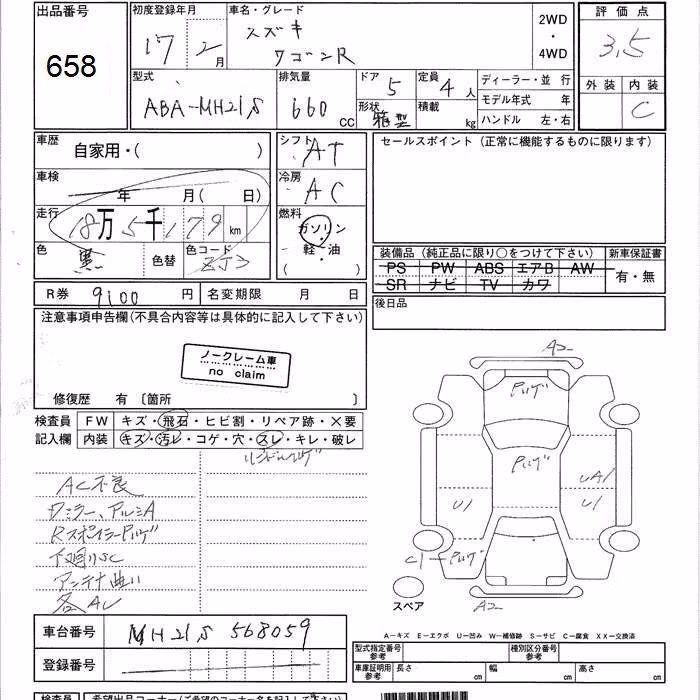 出品番号 初度登録年月 車名・グレード 評価点
658 17年 2月 スズキ ワゴンR 2WD・4WD 3.5
型式 排気量 ドア 5 定員 4人 ディーラー・並行 外装 内装
ABA-MH21S 660cc 形状 箱型 積載 kg モデル年式 年 C
ハンドル 左・右
車歴 自家用・( ) シフト AT セールスポイント (正常に機能するものに限ります)
車検 年 月( 日) 冷房 AC
走行 18万5千179km 燃料 ガソリン・軽・油 ( )
色 黒 色替 色コード ZJ3
装備品 (純正品に限り〇をつけて下さい) 新車保証書
PS PW ABS エアB AW 有・無
SR ナビ TV カワ
R券 9100円 名変期限 月 日 後日品
注意事項申告欄(不具合内容等は具体的に記入して下さい)
ノークレーム車
no claim
修復歴 有 〔箇所 〕
検査員 FW キズ・飛石・ヒビ割・リペア跡・×要
記入欄 内装 キズ・汚レ・コゲ・穴・スレ・キレ・破レ
AC不良
Dミラー、アルミA
RスポイラーPハゲ
下廻りSC
アンテナ曲り
各AU
A2
Pハゲ
Pハゲ
UA1
U1
U1
C1 Pハゲ
A2
スペア
A-キズ E-エクボ U-凹み W-補修跡 S-サビ C-腐食 XX-交換済
車台番号 MH21S 568059
登録番号
型式指定番号 参考 種別区分番号 参考
車庫証明用 参考 長さ cm 幅 cm 高さ cm
検査員 希望出品コーナー(ご希望のコーナー名を記入して下さい)